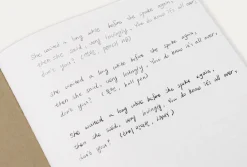 She waited a long while before she spoke again,
then she said, very lovingly, You do know it's all over,
don't you? (
She waited a long while before she spoke again,
then she said, very lovingly, You do know it's all over,
don't you? ( , ball pen)
She waited a long while before she spoke again,
then she said, very lovingly, You do know it's all over,
don't you? (